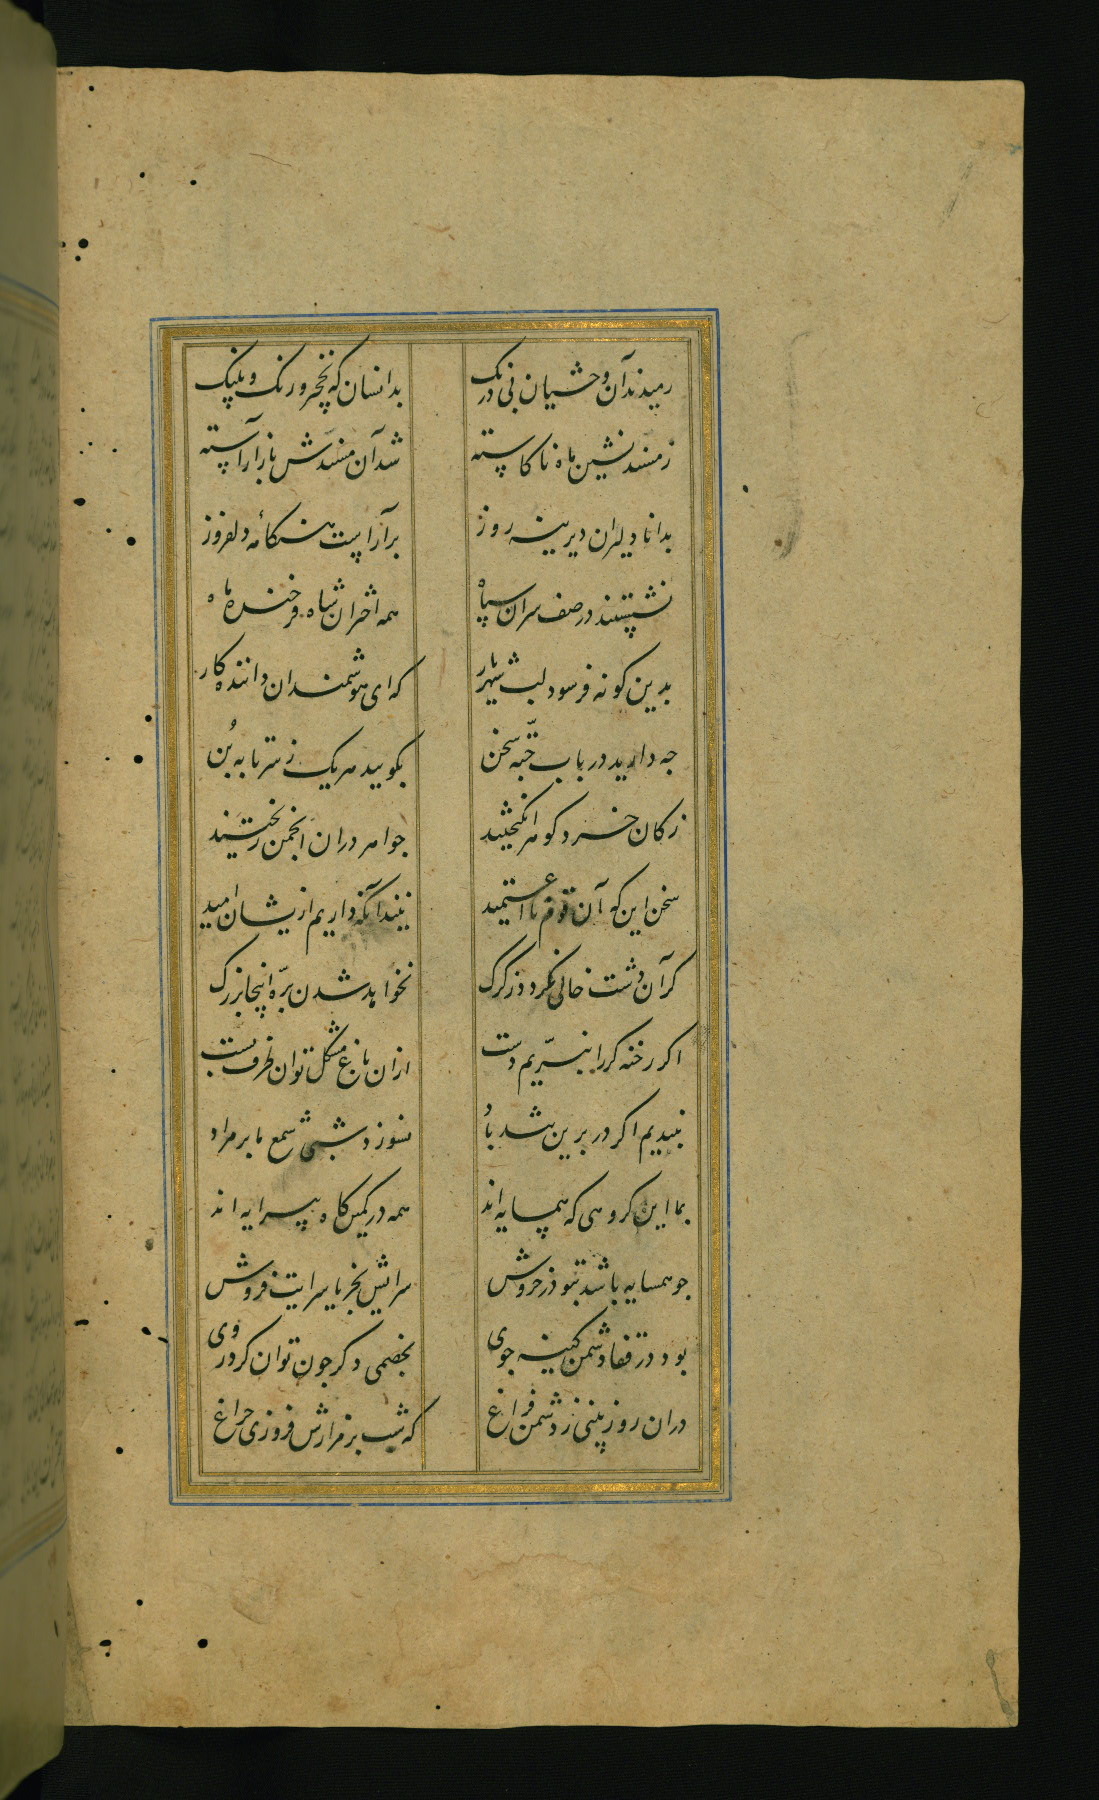 رمیدند آن وحشیان بی درنک بدانسان که نخچیر و رنک و پلنک
ز مسند نشین ماه ناکاسته شد آن مسندش باز آراسته
بدانا دلیران دیرینه روز برآراست هنکامهٔ دلفروز
نشستند در صف سران سپاه همه اختران شاه فرخنده ماه
بدین کونه فرسود لب شهریار که ای هوشمندان داننده کار
چه دارید در باب جته سخن بکویید هر یک ز سر تا به بُن
ز کان خرد کوهر انکیختند جواهر دران انجمن ریختند
سخن این که آن قوم نا اعتمید نیند آنکه داریم ازیشان امید
کر آن دشت خالی نکردد ز کرک نخواهد شدن برّه اینجا بزرک
اکر رخنه کر را نبرّیم دست ازان باغ مشکل توان طرف بست
نبندیم اکر در برین تند باد نسوزد شبی شمع ما بر مراد
بما این کروهی که همسایه اند همه در کمین کاه پیرایه اند
چو همسایه باشد بتو در خروش سرایش بخر یا سرایت فروش
بود در قفا دشمن کینه جوی بخصمی دکر چون توان کرد روی
دران روز بینی ز دشمن فراغ که شب بر مزارش فروزی چراغ